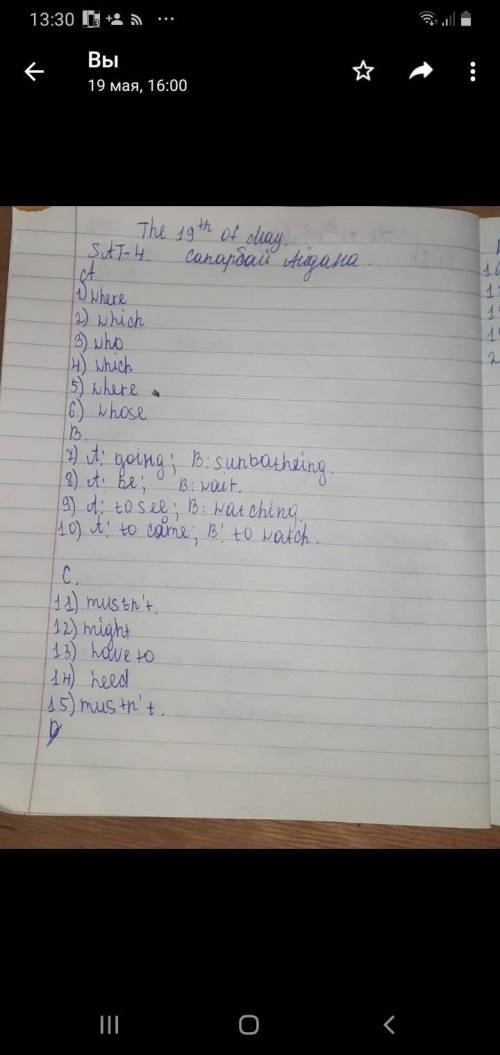 13:30
Вы
19 мая, 16:00
The 19th of May.
SAT-4. Сапарбай Аідана.
A
1) where
2) which
3) who
4) which
5) where
6) whose
B.
7) A: going; B: sunbatheing.
8) A: be; B: wait.
9) A: to see; B: watching.
10) A: to come; B: to watch.
C.
11) mustn't.
12) might
13) have to
14) need
15) mustn't.